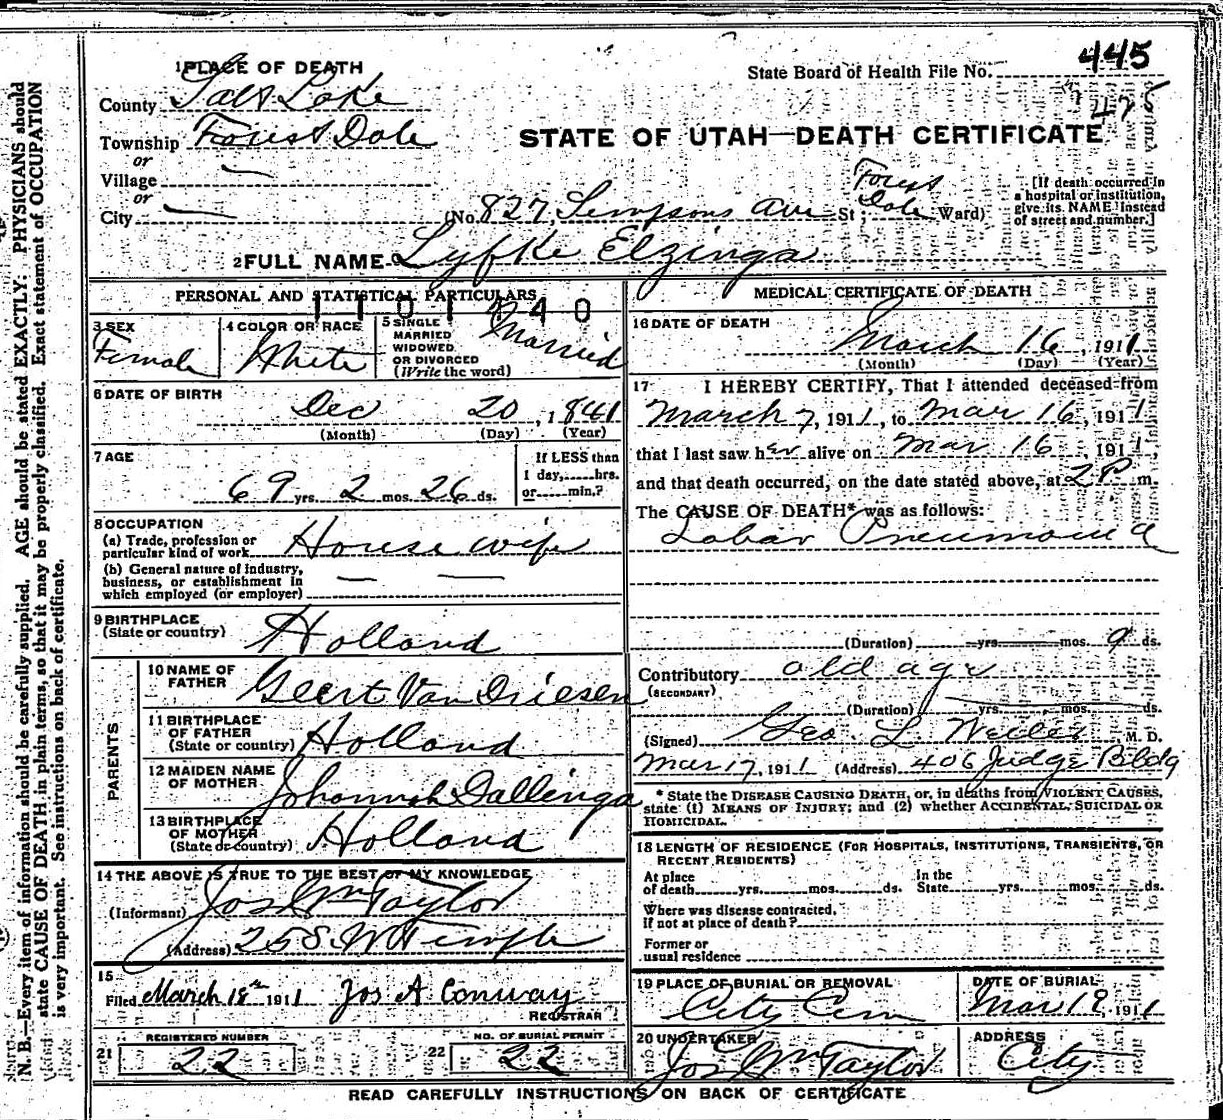 445
State Board of Health File No.
1 PLACE OF DEATH
County Salt Lake
Township Forest Dale
or
Village —
or
City —
STATE OF UTAH—DEATH CERTIFICATE
(No. 827 Simpsons Ave St; Forest Dale Ward)
[If death occurred in
a hospital or institution,
give its NAME instead
of street and number.]
2 FULL NAME Lyfke Elzinga
PERSONAL AND STATISTICAL PARTICULARS
1101440
3 SEX
Female
4 COLOR OR RACE
White
5 SINGLE
MARRIED
WIDOWED
OR DIVORCED
(Write the word)
Married
6 DATE OF BIRTH
Dec 20, 1841
(Month) (Day) (Year)
7 AGE
69 yrs. 2 mos. 26 ds.
If LESS than
1 day,......hrs.
or......min.?
8 OCCUPATION
(a) Trade, profession or
particular kind of work House wife
(b) General nature of industry,
business, or establishment in
which employed (or employer) — —
9 BIRTHPLACE
(State or country) Holland
PARENTS
10 NAME OF
FATHER Geert Van Driesen
11 BIRTHPLACE
OF FATHER
(State or country) Holland
12 MAIDEN NAME
OF MOTHER Johannah Dallinga
13 BIRTHPLACE
OF MOTHER
(State or country) Holland
14 THE ABOVE IS TRUE TO THE BEST OF MY KNOWLEDGE
(Informant) Jos Wm Taylor
(Address) 25 S. W Temple
15
Filed March 18th 1911 Jos A Conway
REGISTRAR
REGISTERED NUMBER
21 22
NO. OF BURIAL PERMIT
22 22
MEDICAL CERTIFICATE OF DEATH
16 DATE OF DEATH
March 16, 1911
(Month) (Day) (Year)
17 I HEREBY CERTIFY, That I attended deceased from
March 7, 1911, to Mar 16, 1911
that I last saw her alive on Mar 16, 1911,
and that death occurred, on the date stated above, at 2 P m.
The CAUSE OF DEATH* was as follows:
Lobar Pneumonia
(Duration) yrs. mos. 9 ds.
Contributory old age
(SECONDARY)
(Duration) yrs. mos. ds.
(Signed) Geo. L. M. D.
Mar 17, 1911 (Address) 406 Judge Bldg
* State the DISEASE CAUSING DEATH, or, in deaths from VIOLENT CAUSES,
state (1) MEANS OF INJURY; and (2) whether ACCIDENTAL, SUICIDAL OR
HOMICIDAL.
18 LENGTH OF RESIDENCE (FOR HOSPITALS, INSTITUTIONS, TRANSIENTS, OR
RECENT RESIDENTS)
At place In the
of death yrs. mos. ds. State yrs. mos. ds.
Where was disease contracted,
If not at place of death?
Former or
usual residence
19 PLACE OF BURIAL OR REMOVAL
City Cem
DATE OF BURIAL
Mar 19, 1911
20 UNDERTAKER
Jos Wm Taylor
ADDRESS
City
READ CAREFULLY INSTRUCTIONS ON BACK OF CERTIFICATE
N. B.—Every item of information should be carefully supplied. AGE should be stated EXACTLY. PHYSICIANS should
state CAUSE OF DEATH in plain terms, so that it may be properly classified. Exact statement of OCCUPATION
is very important. See instructions on back of certificate.